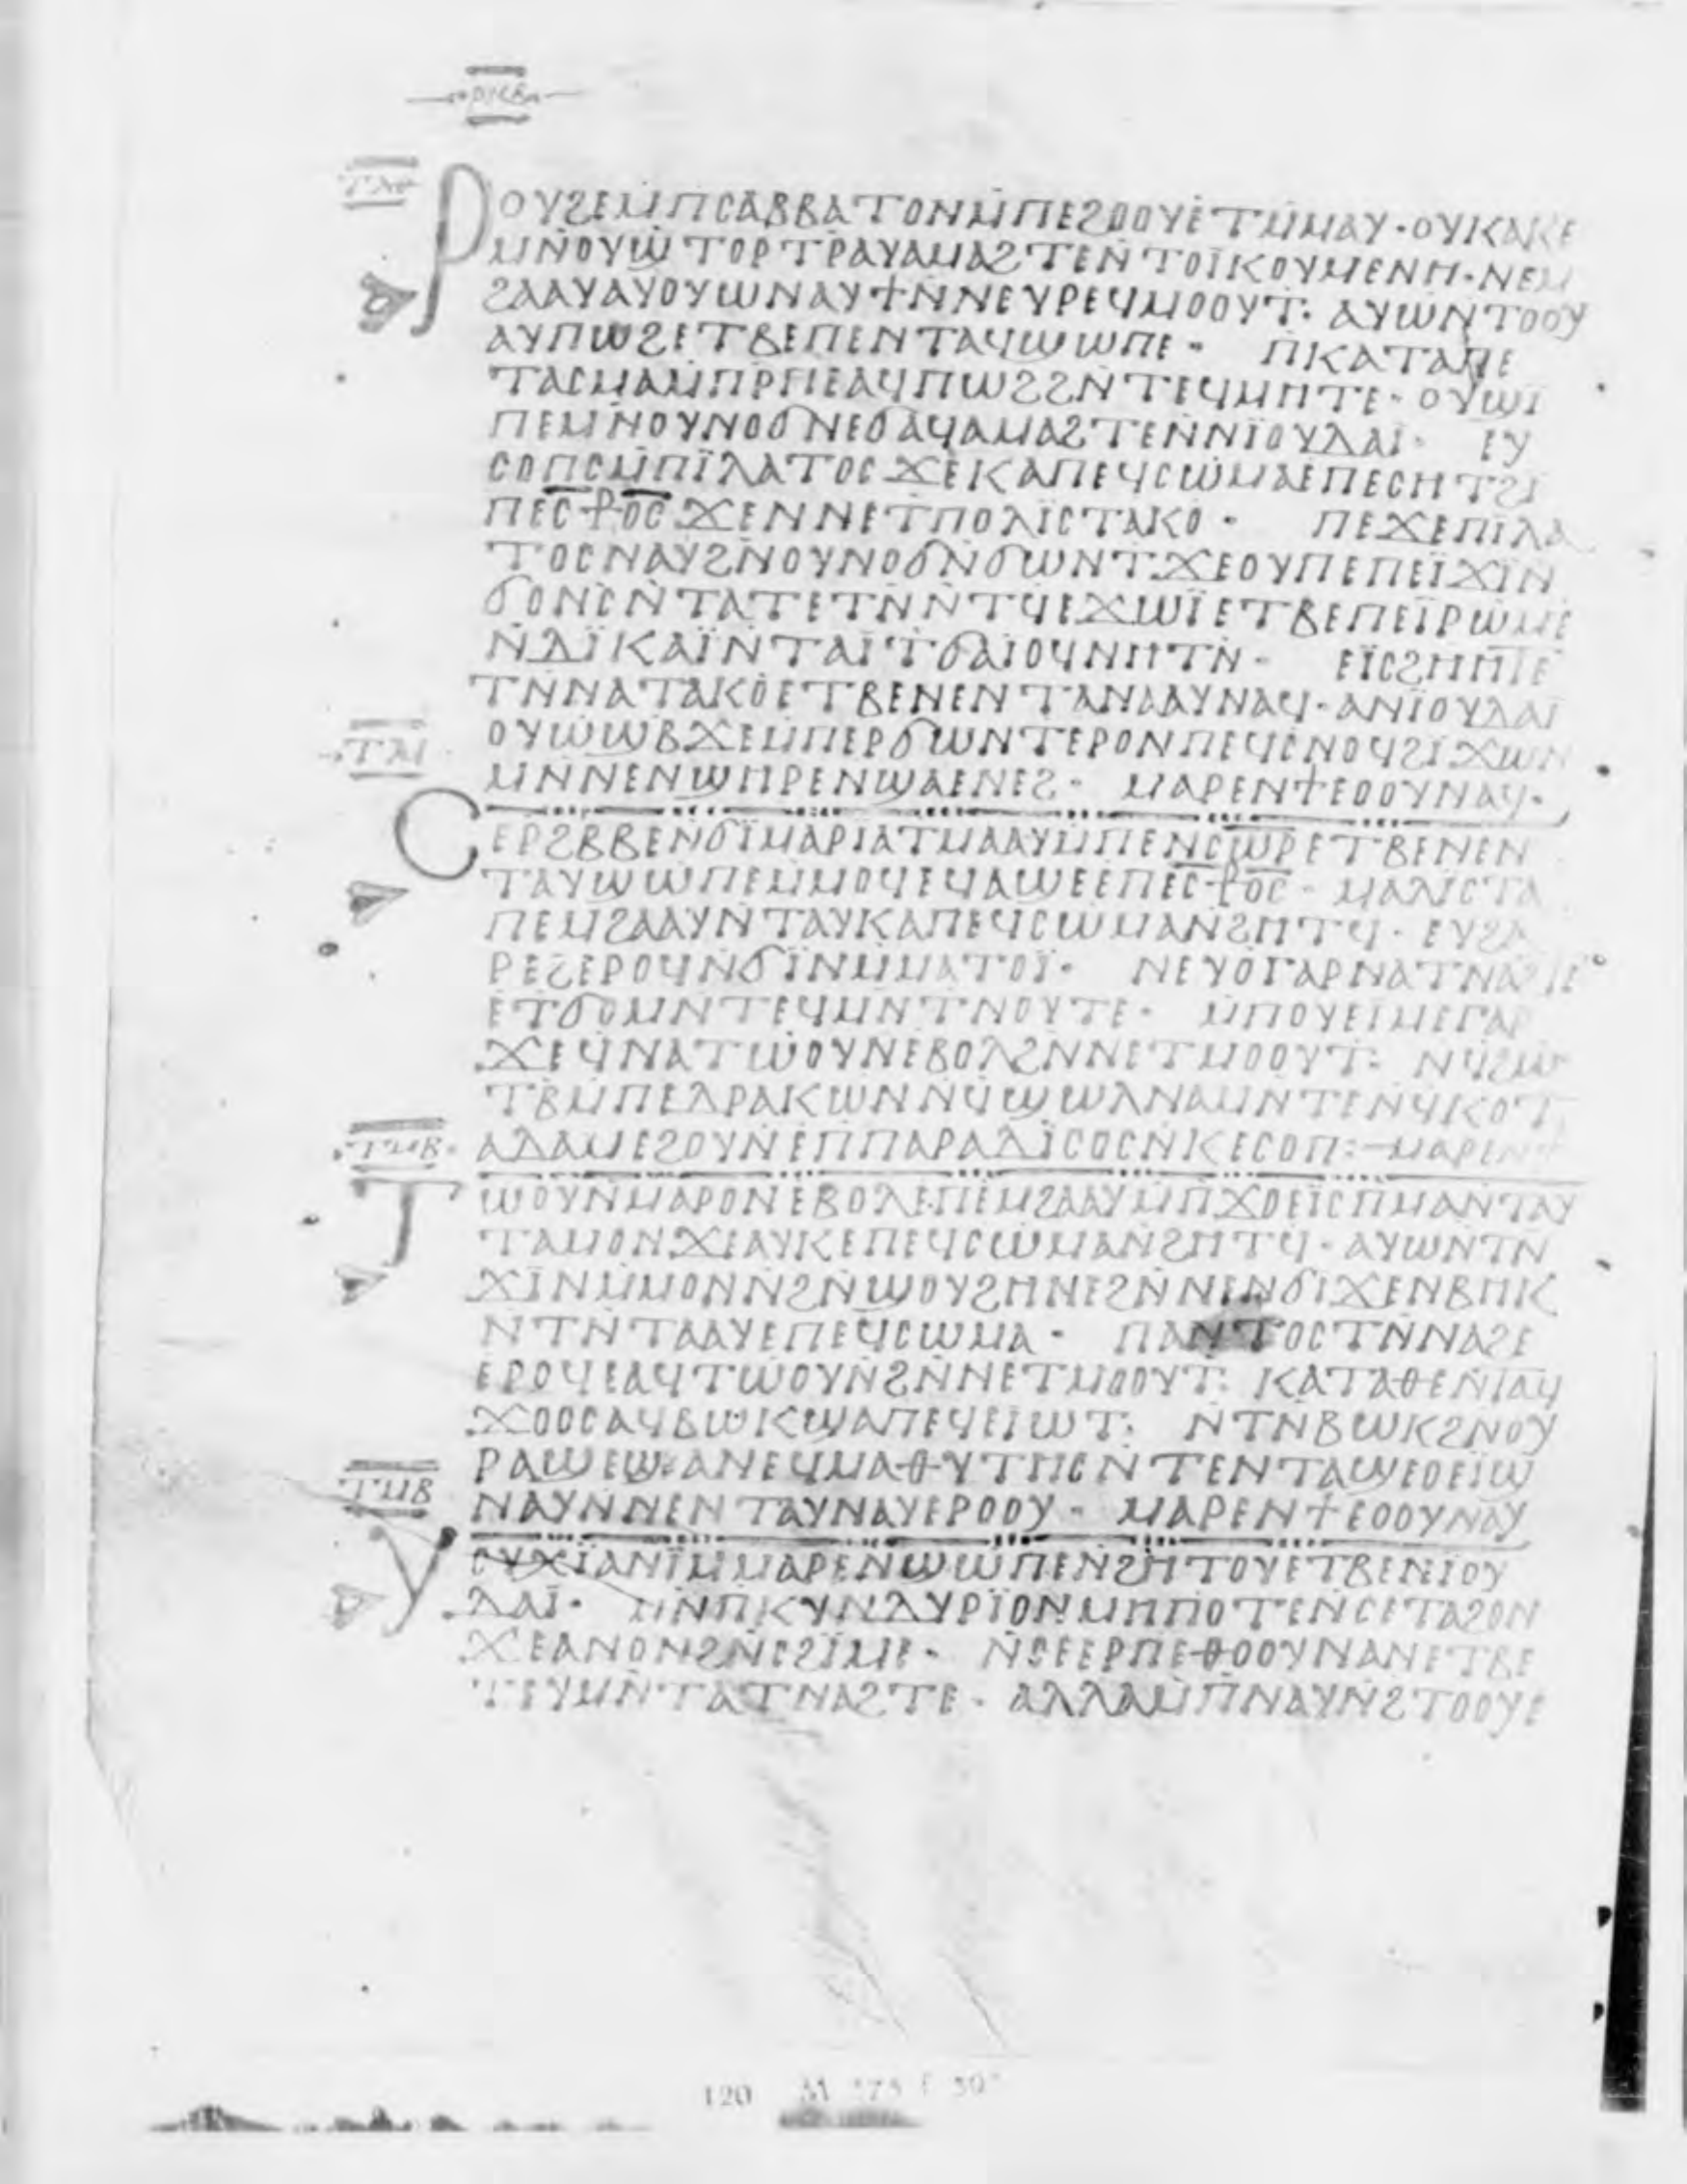 ⲣⲕⲃ
ⲧⲗⲑ
ⲢⲞⲨϨⲈⲘ̄ⲠⲤⲀⲂⲂⲀⲦⲞⲚⲘ̄ⲠⲈϨⲞⲞⲨⲈⲦⲘ̄ⲘⲀⲨ · ⲞⲨⲔⲀⲔⲈ
ⲘⲚ̄ⲞⲨϢⲦⲞⲢⲦⲢⲀⲨⲀⲘⲀϨⲦⲈⲚ̄ⲦⲞⲒ̈ⲔⲞⲨⲘⲈⲚⲎ · ⲚⲈⲘ
ϨⲀⲀⲨⲀⲨⲞⲨⲰⲚⲀⲨϮⲚ̄ⲚⲈⲨⲢⲈϤⲘⲞⲞⲨⲦ: ⲀⲨⲰⲚ̄ⲦⲞⲞⲨ
ⲀⲨⲠⲰϨⲈⲦⲂⲈⲠⲈⲚⲦⲀϤϢⲰⲠⲈ · ⲠⲔⲀⲦⲀⲠⲈ
ⲦⲀⲤⲘⲀⲘ̄ⲠⲢⲠⲈⲀϤⲠⲰϨϨⲚ̄ⲦⲈϤⲘⲎⲦⲈ · ⲞⲨϢⲒ
ⲠⲈⲘⲚ̄ⲞⲨⲚⲞϬⲚⲈϬⲀϤⲀⲘⲀϨⲦⲈⲚ̄ⲚⲒ̈ⲞⲨⲆⲀⲒ̈ · ⲈⲨ
ⲤⲞⲠⲤⲘ̄ⲠⲒ̈ⲖⲀⲦⲞⲤϪⲈⲔⲀⲠⲈϤⲤⲰⲘⲀⲈⲠⲈⲤⲎⲦϨⲒ
ⲠⲈⲤ̅⳨ⲞⲤ̅ϪⲈⲚⲚⲈⲦⲠⲞⲖⲒⲤⲦⲀⲔⲞ · ⲠⲈϪⲈⲠⲒⲖⲀ
ⲦⲞⲤⲚⲀⲨϨⲚ̄ⲞⲨⲚⲞϬⲚ̄ϬⲰⲚⲦ·ϪⲈⲞⲨⲠⲈⲠⲈⲒ̈ϪⲒⲚ
ϬⲞⲚⲤⲚ̄ⲦⲀⲦⲈⲦⲚ̄Ⲛ̄ⲦϤⲈϪⲰⲒ̈ⲈⲦⲂⲈⲠⲈⲒ̈ⲢⲰⲘⲈ
Ⲛ̄ⲆⲒ̈ⲔⲀⲒ̈Ⲛ̄ⲦⲀⲒ̈ⲦϬⲀⲒ̈ⲞϤⲚⲎⲦⲚ̄ · ⲈⲒ̈ⲤϨⲎⲎⲦⲈ
ⲦⲚ̄ⲚⲀⲦⲀⲔⲞⲈⲦⲂⲈⲚⲈⲚⲦⲀⲚⲀⲀⲨⲚⲀϤ · ⲀⲚⲒ̈ⲞⲨⲆⲀⲒ̈
ⲧⲙ
ⲞⲨⲰϢⲂϪⲈⲘ̄ⲠⲈⲢϬⲰⲚⲦⲈⲢⲞⲚⲠⲈϤⲤⲚⲞϤϨⲒ̈ϪⲰⲚ
ⲘⲚ̄ⲚⲈⲚϢⲎⲢⲈⲚϢⲀⲈⲚⲈϨ · ⲘⲀⲢⲈⲚϮⲈⲞⲞⲨⲚⲀϤ ·
ⲤⲈⲢϨⲂⲂⲈⲚϬⲒ̈ⲘⲀⲢⲒⲀⲦⲘⲀⲀⲨⲘ̄ⲠⲈⲚⲤ̅Ⲱ̅Ⲣ̅ⲈⲦⲂⲈⲚⲈⲚ
ⲦⲀⲨϢⲰⲠⲈⲘ̄ⲘⲞϤⲈϤⲀϢⲈⲈⲠⲈⲤ̅⳨ⲞⲤ̅ · ⲘⲀⲖⲒⲤⲦⲀ
ⲠⲈⲘϨⲀⲀⲨⲚ̄ⲦⲀⲨⲔⲀⲠⲈϤⲤⲰⲘⲀⲚ̄ϨⲎⲦϤ · ⲈⲨϨⲀ
ⲢⲈϨⲈⲢⲞϤⲚ̄ϬⲒ̈ⲚⲘ̄ⲘⲀⲦⲞⲒ̈ · ⲚⲈⲨⲞⲄⲀⲢⲚⲀⲦⲚⲀϨⲦⲈ
ⲈⲦϬⲞⲘⲚ̄ⲦⲈϤⲘⲚ̄ⲦⲚⲞⲨⲦⲈ · Ⲙ̄ⲠⲞⲨⲈⲒⲘⲈⲄⲀⲢ
ϪⲈϤⲚⲀⲦⲰⲞⲨⲚⲈⲂⲞⲖϨⲚ̄ⲚⲈⲦⲘⲞⲞⲨⲦ: ⲚϤϨⲰ
ⲦⲂⲘ̄ⲠⲈⲆⲢⲀⲔⲰⲚⲚϤϢⲰⲖⲚⲀⲘⲚ̄ⲦⲈⲚϤⲔⲞⲦ
ⲀⲆⲀⲘⲈϨⲞⲨⲚⲈⲠⲠⲀⲢⲀⲆⲒ̈ⲤⲞⲤⲚ̄ⲔⲈⲤⲞⲠ:—ⲘⲀⲢⲈⲚϮ
ⲧⲙⲃ
ⲦⲰⲞⲨⲚⲘⲀⲢⲞⲚⲈⲂⲞⲖⲈⲠⲈⲘϨⲀⲀⲨⲘ̄ⲠϪⲞⲈⲒⲤⲠⲘⲀⲚ̄ⲦⲀⲨ
ⲦⲀⲘⲞⲚϪⲈⲀⲨⲔⲈⲠⲈϤⲤⲰⲘⲀⲚ̄ϨⲎⲦϤ · ⲀⲨⲰⲚⲦⲚ̄
ϪⲒⲚⲘ̄ⲘⲞⲚⲚ̄ϨⲚ̄ϢⲞⲨϨⲎⲚⲈϨⲚ̄ⲚⲈⲚϬⲒϪⲈⲚⲂⲎⲔ
ⲚⲦⲚ̄ⲦⲀⲀⲨⲈⲠⲈϤⲤⲰⲘⲀ · ⲠⲀⲚⲦⲞⲤⲦⲚ̄ⲚⲀϨⲈ
ⲈⲢⲞϤⲈⲀϤⲦⲰⲞⲨⲚ̄ϨⲚ̄ⲚⲈⲦⲘⲞⲞⲨⲦ: ⲔⲀⲦⲀⲐⲈⲚ̄ⲦⲀϤ
ϪⲞⲞⲤⲀϤⲂⲰⲔϢⲀⲠⲈϤⲈⲒⲰⲦ: Ⲛ̄ⲦⲚ̄ⲂⲰⲔϨⲚⲞⲨ
ⲢⲀϢⲈϢⲀⲚⲈϤⲘⲀⲐⲨⲦⲎⲤⲚ̄ⲦⲈⲚⲦⲀϢⲈⲞⲈⲒϢ
ⲧⲙⲃ
ⲚⲀⲨⲚ̄ⲚⲈⲚⲦⲀⲨⲚⲀⲨⲈⲢⲞⲞⲨ · ⲘⲀⲢⲈⲚϮⲈⲞⲞⲨⲚⲀϤ
ⲨⲤⲨⲬⲒⲀⲚⲒ̈ⲘⲘⲀⲢⲈⲚϢⲰⲠⲈⲚ̄ϨⲎⲦⲞⲨⲈⲦⲂⲈⲚⲒⲞⲨ
ⲆⲀⲒ̈ · ⲘⲚ̄ⲠⲔⲨⲚⲆⲨⲢⲒ̈ⲞⲚⲘⲎⲠⲞⲦⲈⲚ̄ⲤⲈⲦⲀϨⲞⲚ
ϪⲈⲀⲚⲞⲚϨⲚ̄ⲤϨⲒ̈ⲘⲈ · Ⲛ̄ⲤⲈⲈⲢⲠⲈⲐⲞⲞⲨⲚⲀⲚⲈⲦⲂⲈ
ⲦⲈⲨⲘⲚ̄ⲦⲀⲦⲚⲀϨⲦⲈ · ⲀⲖⲖⲀⲘ̄ⲠⲚⲀⲨⲚ̄ϨⲦⲞⲞⲨⲈ
120